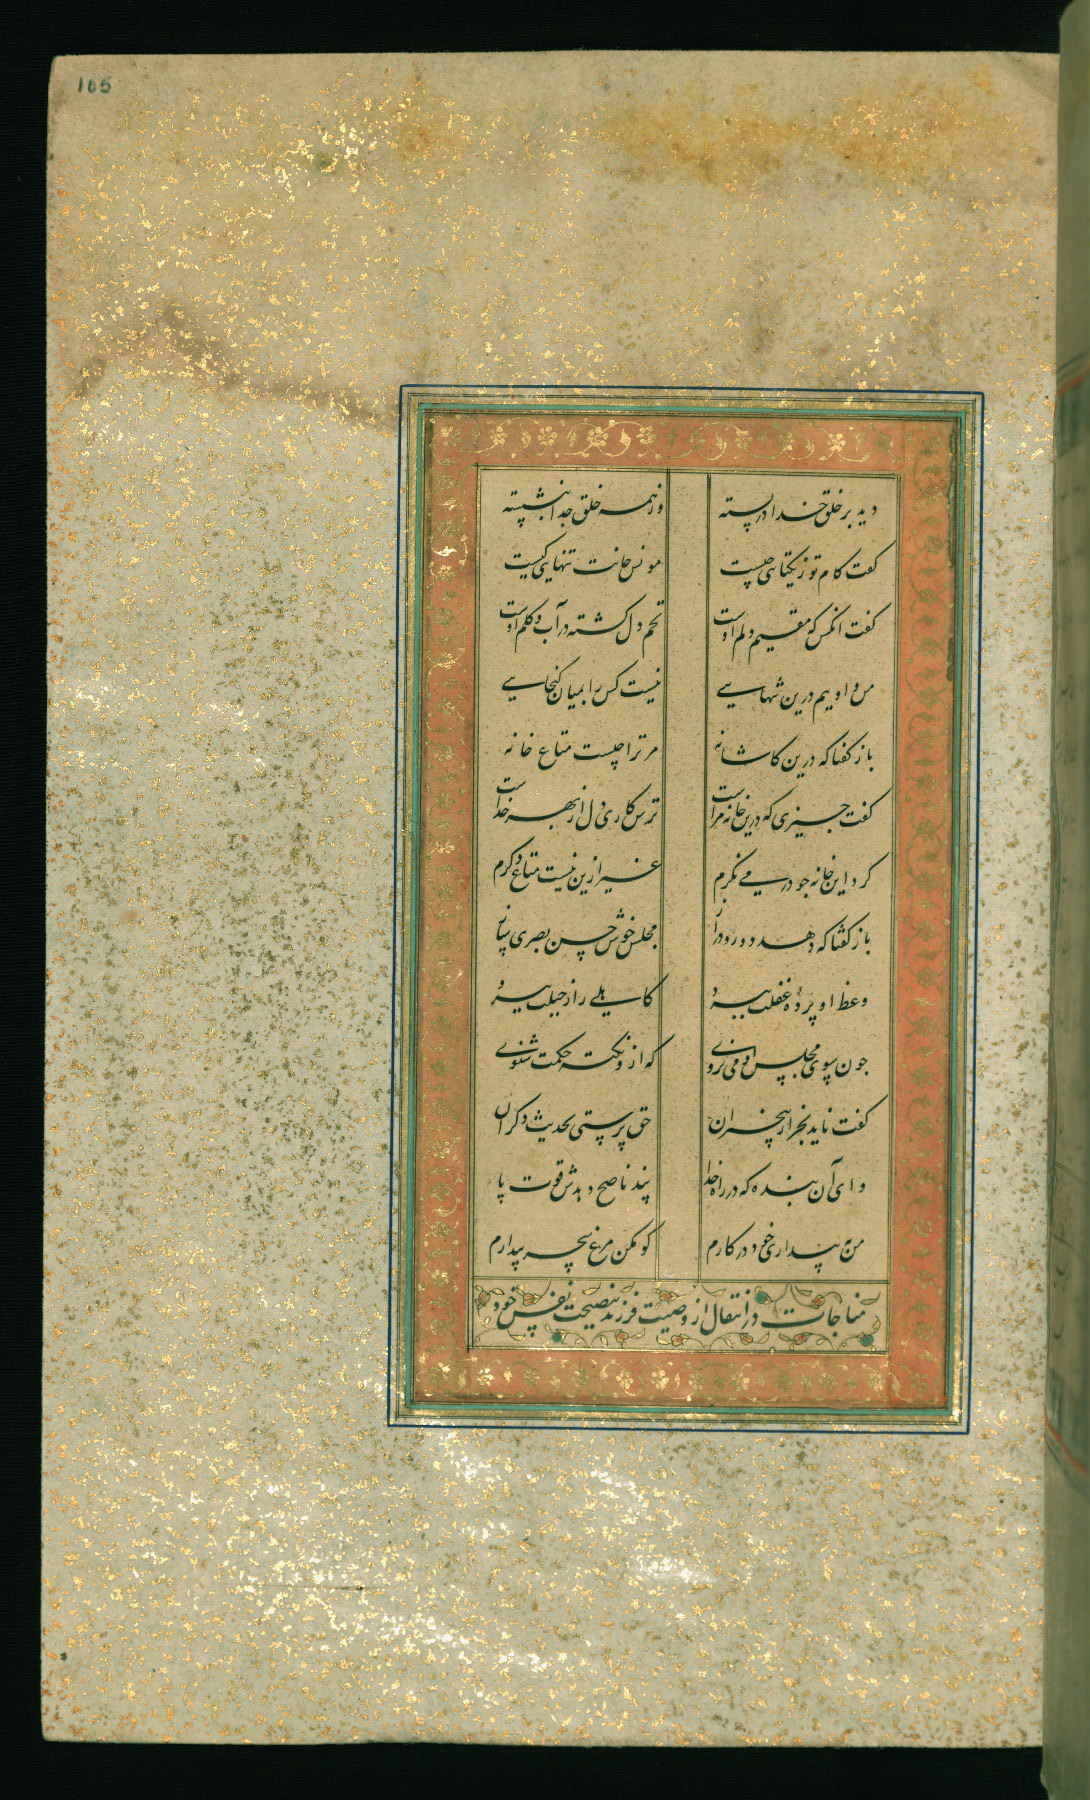 105
دید بر خلق خدا در بسته وز همه خلق جدا بنشسته
گفت کام تو ز یکتایی چیست مونس خانت تنهایی کیست
گفت انکس که مقیم دلم اوست تخم دل کشته در آب و گلم اوست
من و اوییم درین تنهایی نیست کس را بمیان گنجایی
باز گفتا که درین کاشانه مر ترا چیست متاع خانه
گفت چیزی که درین خانه مراست ترس کاری دل از بهر خداست
گرد این خانه چو در می نگرم غیر ازین نیست متاع دگرم
باز گفتا که دهد دور و دراز مجلس خوش حسن بصری ساز
وعظ او پرده غفلت ببرد کاهلی را ز جبلت ببرد
چون سوی مجلس او می نروی که ازو نکته حکمت شنوی
گفت ناید بجز از بیخبران حق پرستی بحدیث دگران
وای آن بنده که در راه خدا پند ناصح دهدش قوت پا
من به بیداری خود در کارم گو مکن مرغ سحر بیدارم
مناجات در انتقال از وصیت فرزند بنصیحت نفس خود